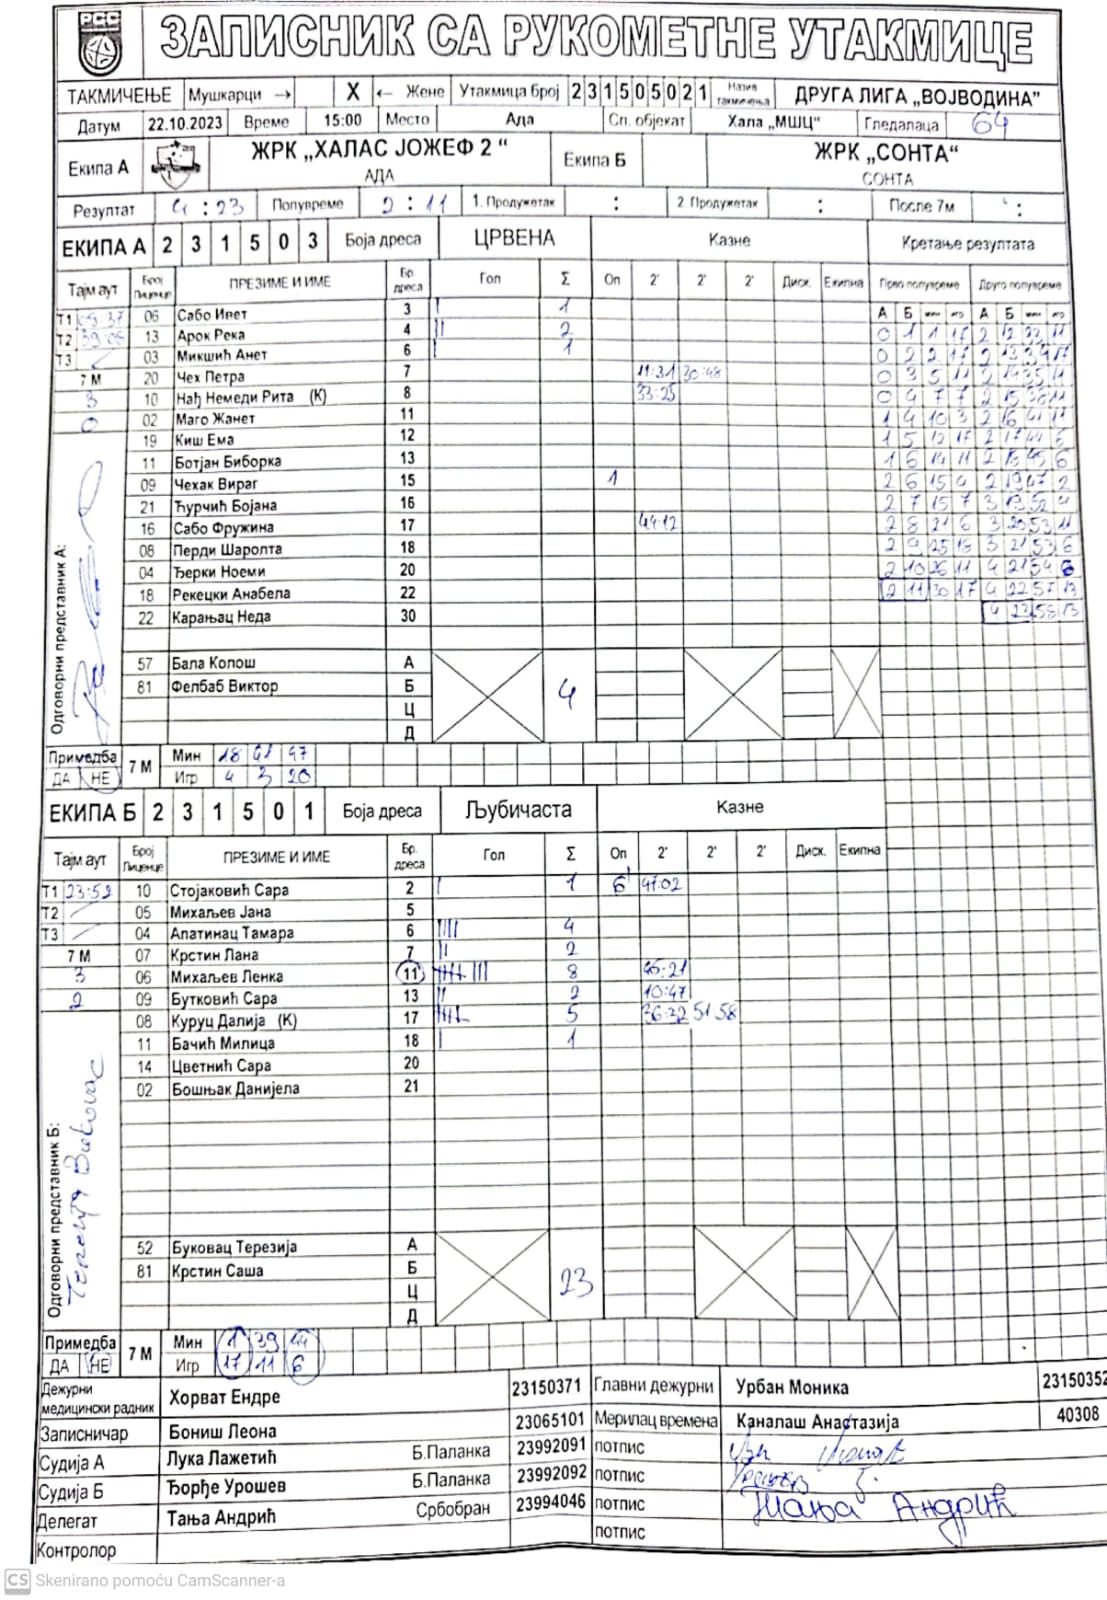 РСС
ЗАПИСНИК СА РУКОМЕТНЕ УТАКМИЦЕ
ТАКМИЧЕЊЕ Мушкарци → X ← Жене Утакмица број 2 3 1 5 0 5 0 2 1 Назив такмичења ДРУГА ЛИГА „ВОЈВОДИНА"
Датум 22.10.2023 Време 15:00 Место Ада Сп. објекат Хала „МШЦ" Гледалаца 64
Екипа А ЖРК „ХАЛАС ЈОЖЕФ 2 " АДА Екипа Б ЖРК „СОНТА" СОНТА
Резултат 4 : 23 Полувреме 2 : 11 1. Продужетак : 2. Продужетак : После 7м :
ЕКИПА А 2 3 1 5 0 3 Боја дреса ЦРВЕНА Казне Кретање резултата
Тајм аут Број Лиценце ПРЕЗИМЕ И ИМЕ Бр. дреса Гол Σ Оп 2' 2' 2' Диск. Екипна Прво полувреме Друго полувреме
А Б мин игр А Б мин игр
T1 06 Сабо Ивет 3 | 1
T2 39:06 13 Арок Река 4 || 2
T3 03 Микшић Анет 6 | 1
7 М 20 Чех Петра 7 11:31 30:48
3 10 Нађ Немеди Рита (К) 8 33:25
0 02 Маго Жанет 11
19 Киш Ема 12
11 Ботјан Биборка 13
09 Чехак Вираг 15 1
21 Ђурчић Бојана 16
16 Сабо Фружина 17 44:12
08 Перди Шаролта 18
04 Ђерки Ноеми 20
18 Рекецки Анабела 22
22 Карањац Неда 30
0 1 1 17 2 12 32 11
0 2 2 17 2 13 34 17
0 3 5 11 2 14 35 11
0 4 7 7 2 15 38 11
1 4 10 3 2 16 41 11
1 5 12 17 2 17 44 6
1 6 14 11 2 18 45 6
2 6 15 4 2 19 47 2
2 7 15 7 3 19 52 4
2 8 21 6 3 20 53 11
2 9 25 18 3 21 53 6
2 10 26 11 4 21 54 6
2 11 30 17 4 22 57 13
4 23 58 13
Одговорни представник А:
57 Бала Колош А
81 Фелбаб Виктор Б 4
Ц
Д
Примедба ДА НЕ 7 М Мин 18 41 47
Игр 4 3 20
ЕКИПА Б 2 3 1 5 0 1 Боја дреса Љубичаста Казне
Тајм аут Број Лиценце ПРЕЗИМЕ И ИМЕ Бр. дреса Гол Σ Оп 2' 2' 2' Диск. Екипна
T1 23:52 10 Стојаковић Сара 2 | 1 6' 47:02
T2 05 Михаљев Јана 5
T3 04 Апатинац Тамара 6 |||| 4
7 М 07 Крстин Лана 7 || 2
3 06 Михаљев Ленка 11 8 45:21
2 09 Бутковић Сара 13 || 2 10:47
08 Куруц Далија (К) 17 5 36:32 51:58
11 Бачић Милица 18 | 1
14 Цветнић Сара 20
02 Бошњак Данијела 21
Одговорни представник Б:
52 Буковац Терезија А
81 Крстин Саша Б 23
Ц
Д
Примедба ДА НЕ 7 М Мин 1 39 44
Игр 17 11 6
Дежурни медицински радник Хорват Ендре 23150371 Главни дежурни Урбан Моника 23150352
Записничар Бониш Леона 23065101 Мерилац времена Каналаш Анастазија 40308
Судија А Лука Лажетић Б.Паланка 23992091 потпис
Судија Б Ђорђе Урошев Б.Паланка 23992092 потпис
Делегат Тања Андрић Србобран 23994046 потпис Тања Андрић
Контролор потпис
CS Skenirano pomoću CamScanner-a